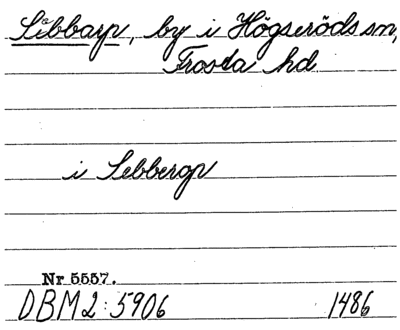 Sibbarp, by i Högseröds sn,
Frosta hd.
i Sebbergp
Nr 5557.
DBM 2: 5906 1486